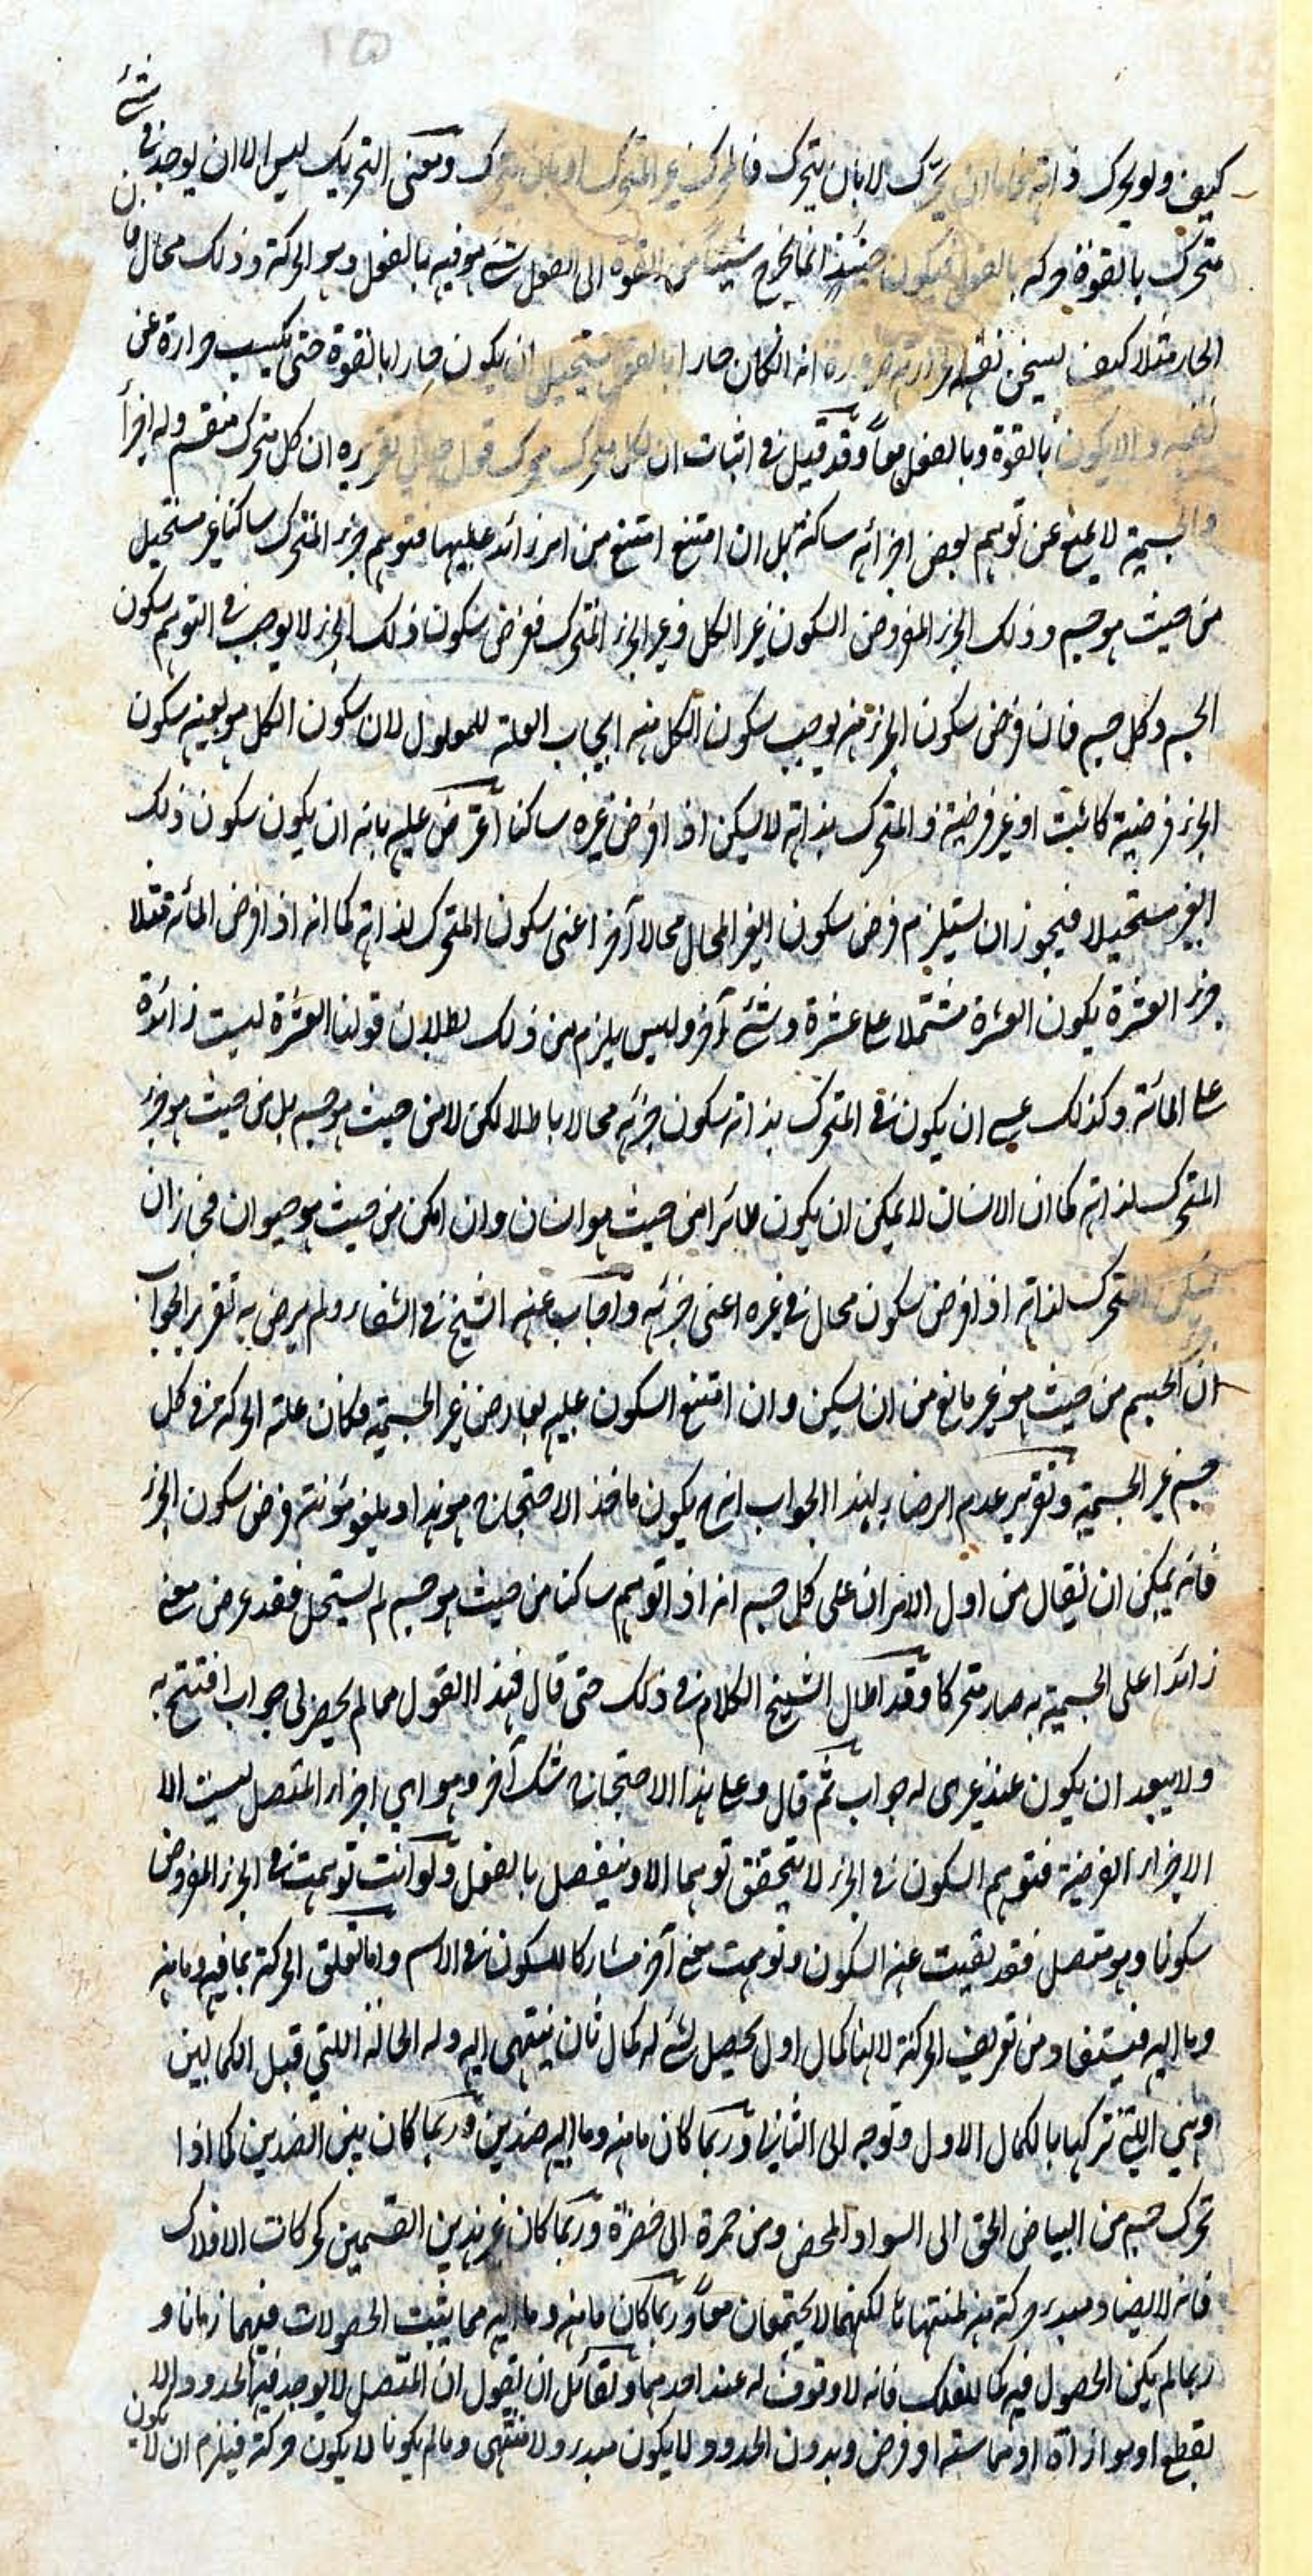 كيف ولو يحرك ذاته فاما ان يحرك لا بان يتحرك فالمحرك غير المتحرك او بان يتحرك ومعنى التحريك ليس الا ان يوجد في شئ
متحرك بالقوة حركة بالفعل فيكون حينئذ انما يخرج شيئا من القوة الى الفعل بشئ هو فيه بالفعل وهو الحركة وذلك محال فان
الحار مثلا كيف يسخن نفسه بحرارته ضرورة انه ان كان حارا بالفعل يستحيل ان يكون حارا بالقوة حتى يكتسب حرارة عن
نفسه والا يكون بالقوة وبالفعل معا وقد قيل في اثبات ان لكل متحرك محرك قول جدلي تقريره ان كل متحرك منقسم وله اجزأ
والجسمية لا يمنع عن توهم بعض اجزائه ساكنة بل ان امتنع امتنع من امر زائد عليها فتوهم جزء المتحرك ساكنا غير مستحيل
من حيث هو جسم وذلك الجزء المفروض السكون غير الكل وغير الجزء المتحرك ففرض سكون ذلك الجزء لا يوجب في التوهم سكون
الجسم وكل جسم فان فرض سكون الجزء منه يوجب سكون الكل منه ايجاب العلة للمعلول لان سكون الكل هو بعينه سكون
الجزء فرضية كانت او غير فرضية والمتحرك بذاته لا يسكن اذا فرض غيره ساكنا اعترض عليه بانه ان يكون سكون ذلك
الغير مستحيلا فيجوز ان يستلزم فرض سكون الغير المحال محالا آخر اعني سكون المتحرك لذاته كما انه اذا فرض المائة مثلا
جزء العشرة يكون العشرة مشتملا على عشرة وشئ آخر وليس يلزم من ذلك بطلان قولنا العشرة ليست زائدة
على المائة وكذلك عسى ان يكون في المتحرك بذاته سكون جزئه محالا باطلا لكن لا من حيث هو جسم بل من حيث هو جزء
المتحرك لذاته كما ان الانسان لا يمكن ان يكون طائرا من حيث هو انسان وان امكن من حيث هو حيوان فجاز ان
يسكن المتحرك لذاته اذا فرض سكون محال في غيره اعني جزئه واجاب عنه الشيخ في الشفاء ولم يرض به تقرير الجواب
ان الجسم من حيث هو غير مانع من ان يسكن وان امتنع السكون عليه بعارض غير الجسمية فكان علة الحركة في كل
جسم غير الجسمية وتقرير عدم الرضاء بهذا الجواب انه ح يكون ماخذ الاحتجاج هو هذا ويلغو مؤنة فرض سكون الجزء
فانه يمكن ان يقال من اول الامر ان على كل جسم انه اذا توهم ساكنا من حيث هو جسم لم يستحل فقد عرض معنى
زائدا على الجسمية به صار متحركا وقد اطال الشيخ الكلام في ذلك حتى قال فهذا القول مما لم يحضر لي جواب افتتح به
ولا يبعد ان يكون عند غيري له جواب ثم قال وعلى هذا الاحتجاج شك آخر وهو اي اجزاء المتصل ليست الا
الاجزاء الفرضية فتوهم السكون في الجزء لا يتحقق توهما الا وينفصل بالفعل ولو انت توهمت في الجزء المفروض
سكونا وهو متصل فقد نفيت عنه السكون وتوهمت معنى آخر مشاركا للسكون في الاسم واما تعلق الحركة بما فيه وما منه
وما اليه فيستفاد من تعريف الحركة لانها كمال اول يحصل لشئ له كمال ثان ينتهي اليه وله الحالة اللتي قبل الكمالين
وهي اللتي تركها بالكمال الاول وتوجه الى الثاني وربما كان ما منه وما اليه ضدين وربما كان بين الضدين كما اذا
تحرك جسم من البياض الحق الى السواد المحض ومن حمرة الى خضرة وربما كان غير هذين القسمين كحركات الافلاك
فانه لا يضاد مبدء حركة منه لمنتهاها لكنهما لا يجتمعان معا وربما كان ما منه وما اليه مما يثبت الحصولات فيهما زمانا و
ربما لم يكن الحصول فيه كما للفلك فانه لا وقوف له عند احدهما ولقائل ان يقول ان المتصل لا يوجد فيه الحدود الا
بقطع او موازاة او مماسة او فرض وبدون الحدود لا يكون مبدء ولا منتهى وما لم يكونا لا يكون حركة فيلزم ان لا يكون